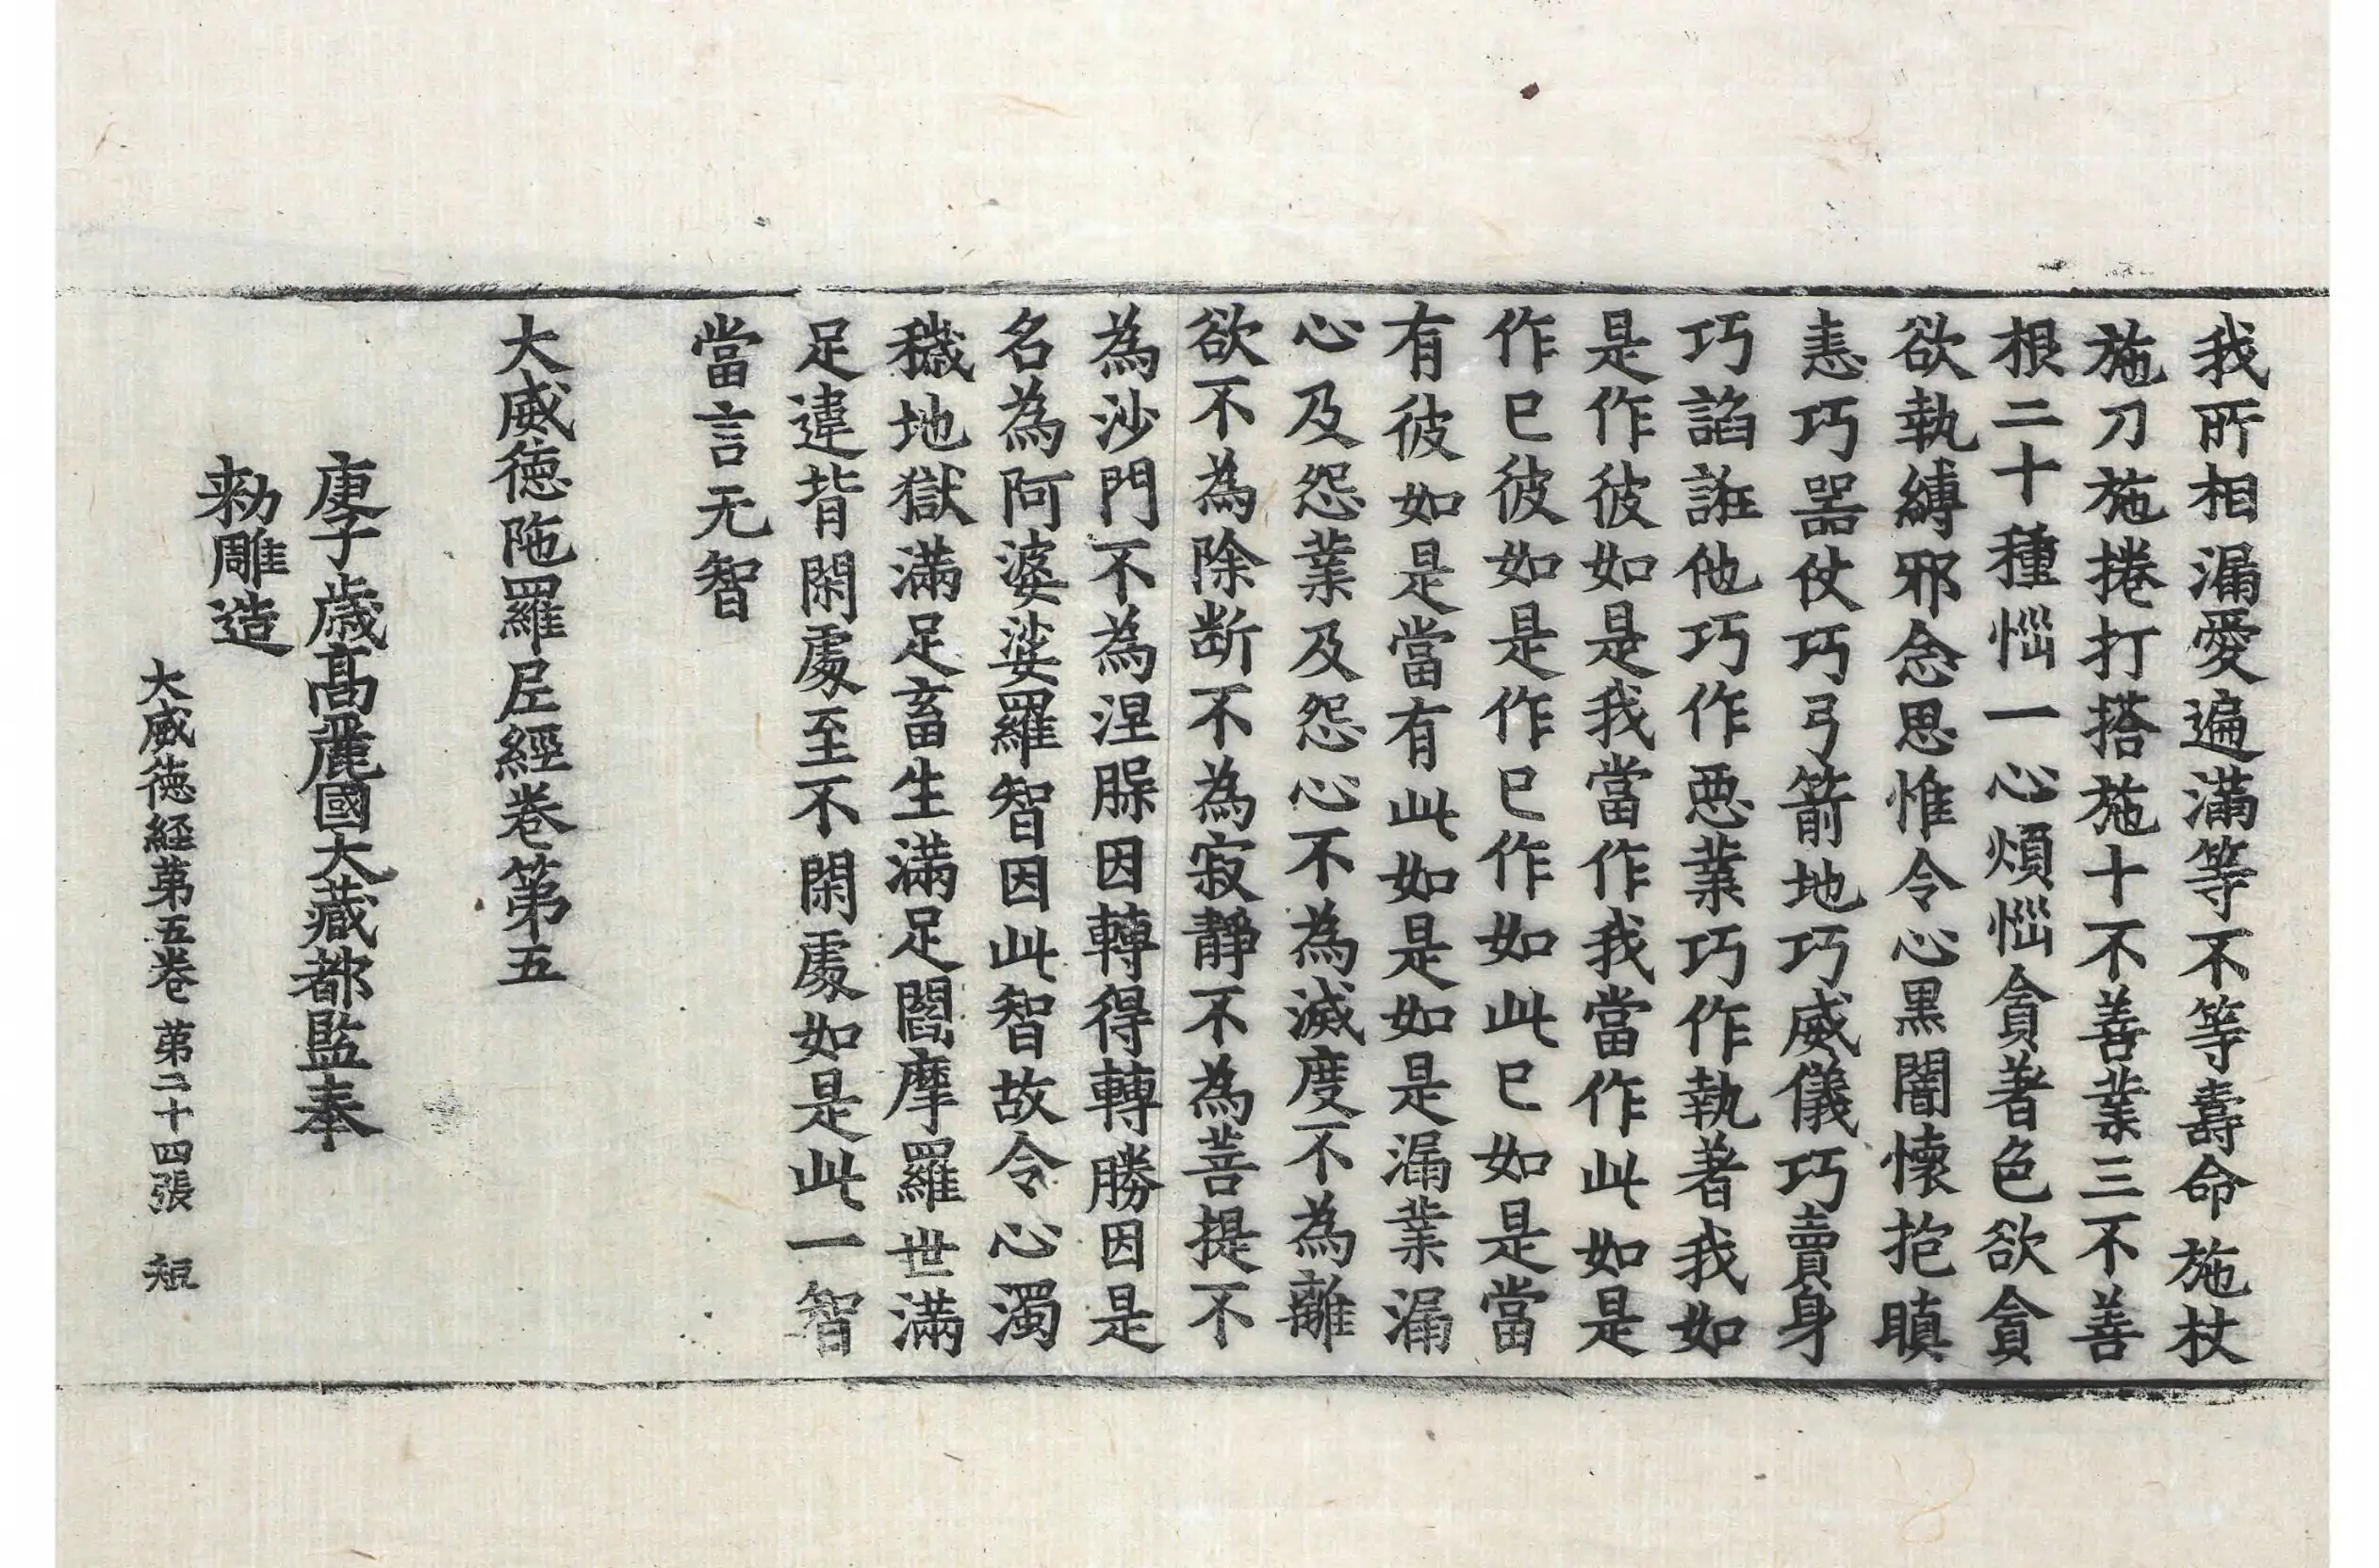 我所相漏愛遍滿等不等壽命施杖
施刀施捲打搭施十不善業三不善
根二十種惱一心煩惱貪著色欲貪
欲執縛邪念思惟令心黑闇懷抱瞋
恚巧器仗巧弓箭地巧威儀巧賣身
巧諂誑他巧作惡業巧作執著我如
是作彼如是我當作我當作此如是
作已彼如是作已作如此已如是當
有彼如是當有此如是如是漏業漏
心及怨業及怨心不為滅度不為離
欲不為除断不為寂靜不為菩提不
為沙門不為涅槃因轉得轉勝因是
名為阿婆娑羅智因此智故令心濁
穢地獄滿足畜生滿足閻摩羅世滿
足違背閑處至不閑處如是此一智
當言无智
大威德陁羅尼經卷第五
庚子歲高麗國大藏都監奉
勑雕造
大威德經第五卷 第二十四張 短